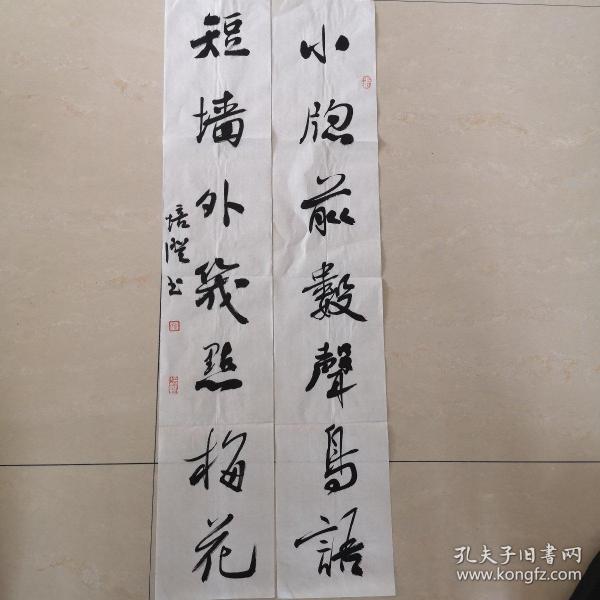 小牕前數聲鳥語
短墙外幾點梅花
培澄书
孔夫子旧書网
www.kongfz.com